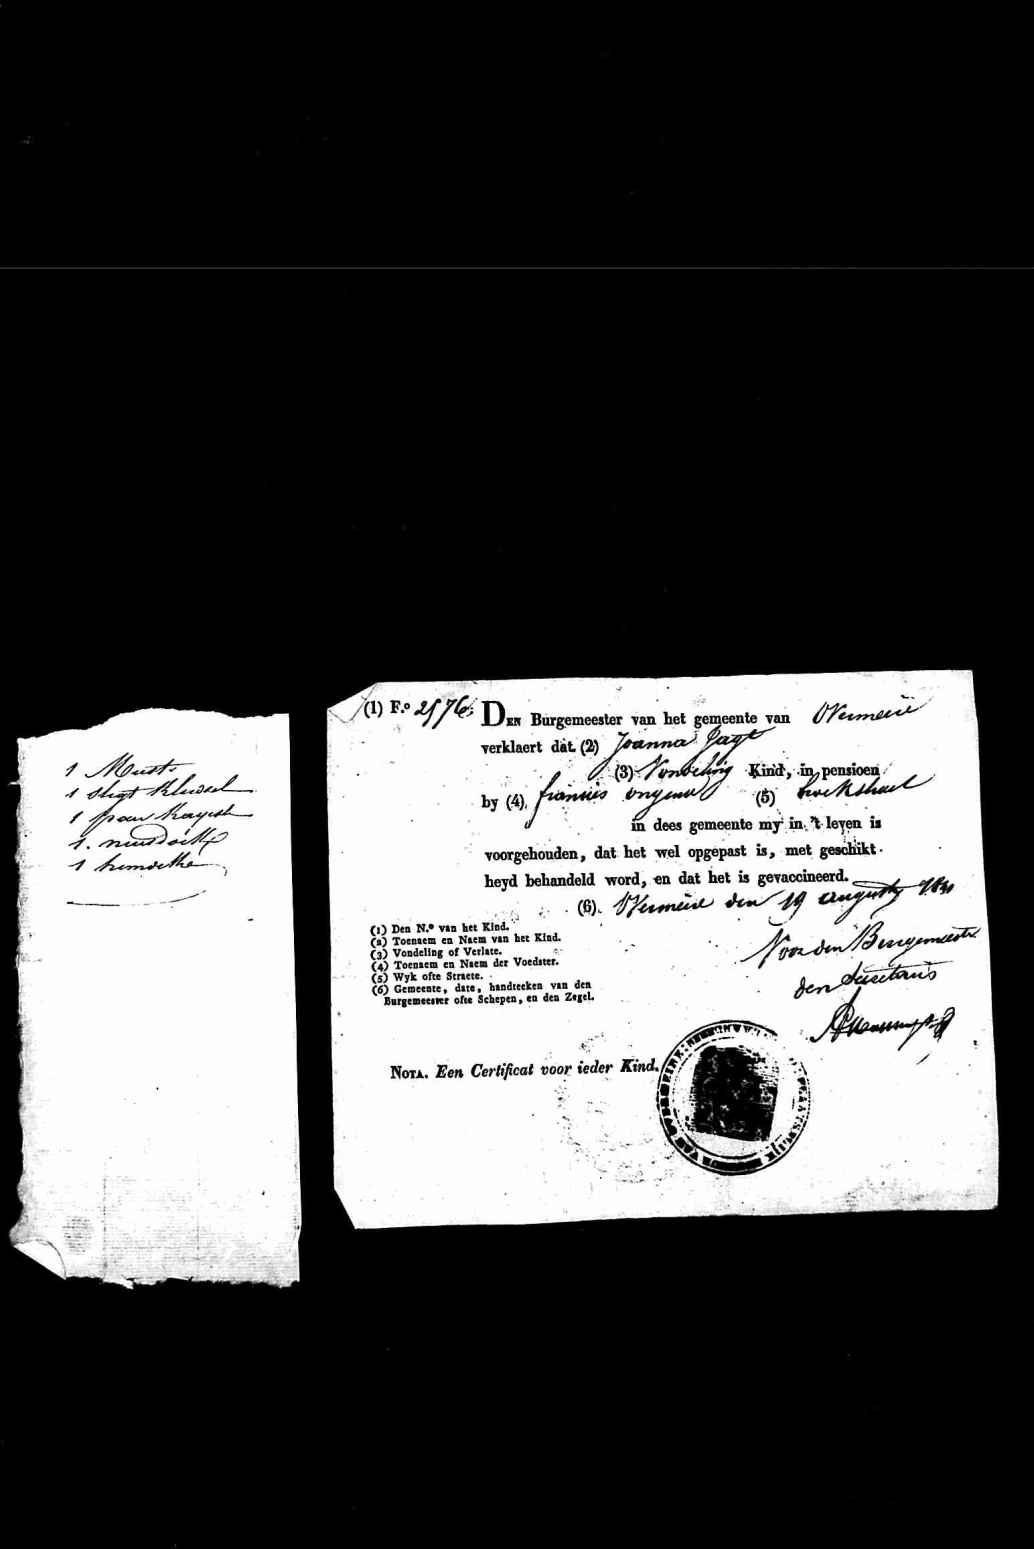 1 Muts
1 slegt kluweel
1 paer
1. neusdoek
1 hemdeke
(1) F.º 2576. DEN Burgemeester van het gemeente van Overmeire
verklaert dat (2) Joanna Jagt
(3) Vondeling Kind, in pensioen
by (4) francies (5)
in dees gemeente my in 't leven is
voorgehouden, dat het wel opgepast is, met geschikt-
heyd behandeld word, en dat het is gevaccineerd.
(6) Overmeire den 19 augusty
(1) Den N.º van het Kind.
(2) Toenaem en Naem van het Kind.
(3) Vondeling of Verlate.
(4) Toenaem en Naem der Voedster.
(5) Wyk ofte Straete.
(6) Gemeente, date, handteeken van den
Burgemeester ofte Schepen, en den Zegel.
Voor den Burgemeester
den Secretaris
NOTA. Een Certificat voor ieder Kind.